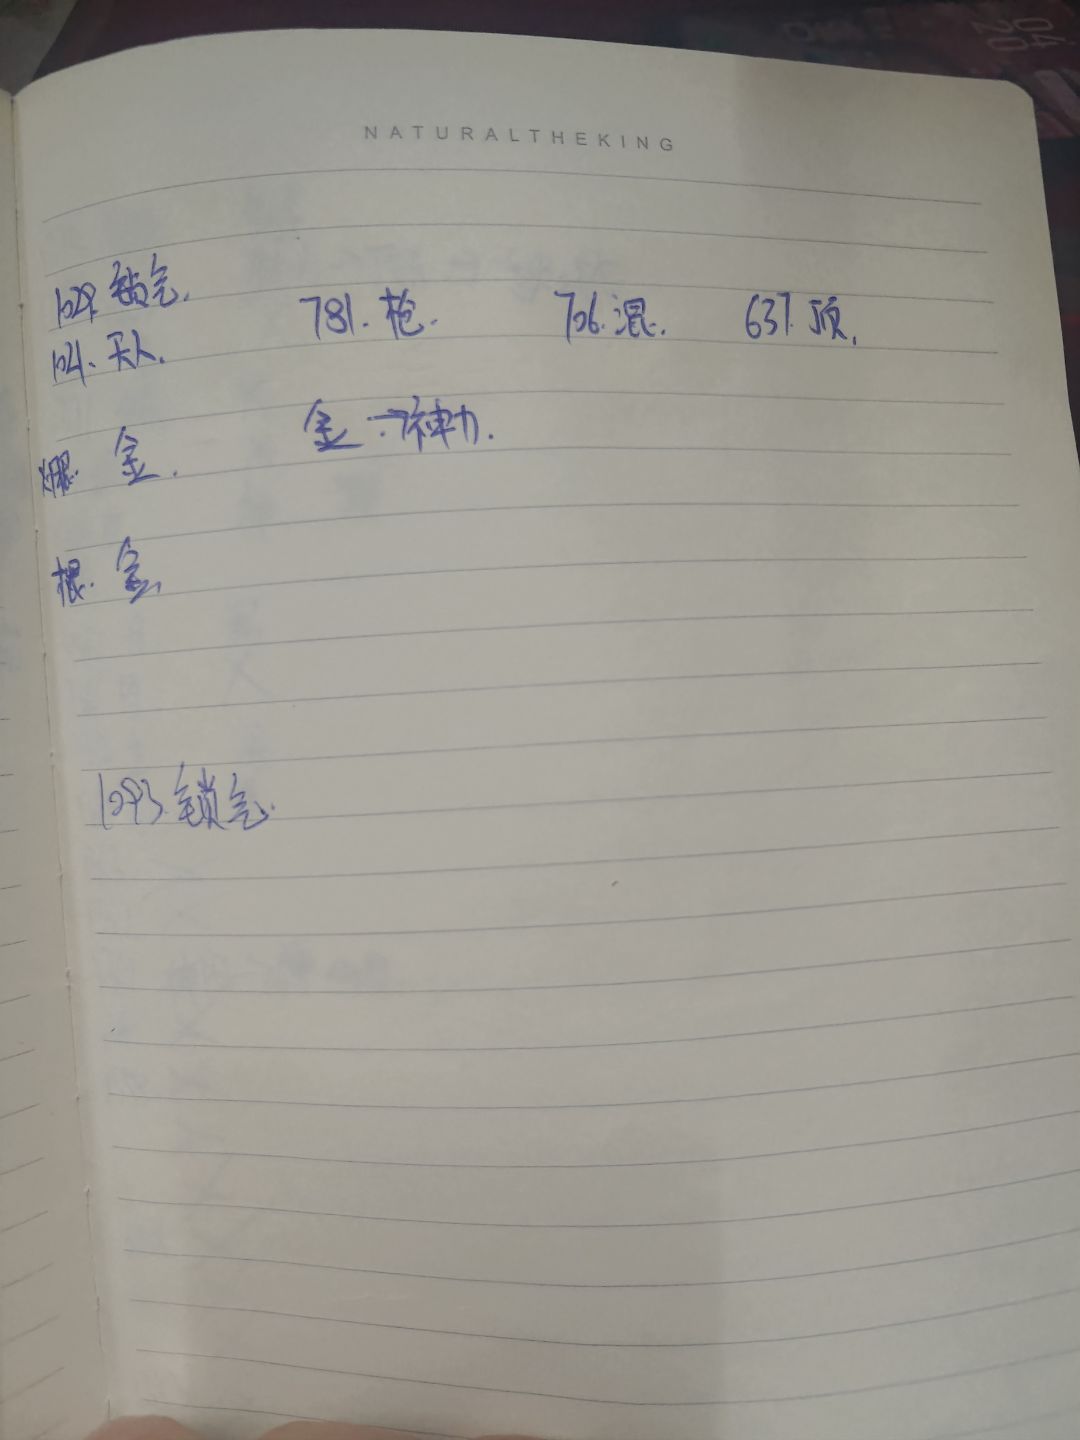 NATURALTHEKING
1029. 锁气.
781. 枪. 706. 混. 637. 顶.
1021. 天人.
金 → 神力.
爆. 金.
根. 金.
1093. 锁气.